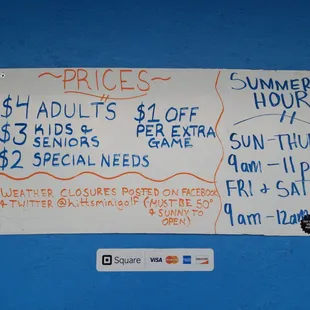 ~PRICES~
$4 ADULTS
$3 KIDS &
SENIORS
$2 SPECIAL NEEDS
$1 OFF
PER EXTRA
GAME
WEATHER CLOSURES POSTED ON FACEBOOK
& TWITTER @hittsminigolf (MUST BE 50°
& SUNNY TO
OPEN)
SUMMER
HOUR
SUN-THU
9am-11p
FRI & SAT
9am-12am
Square VISA